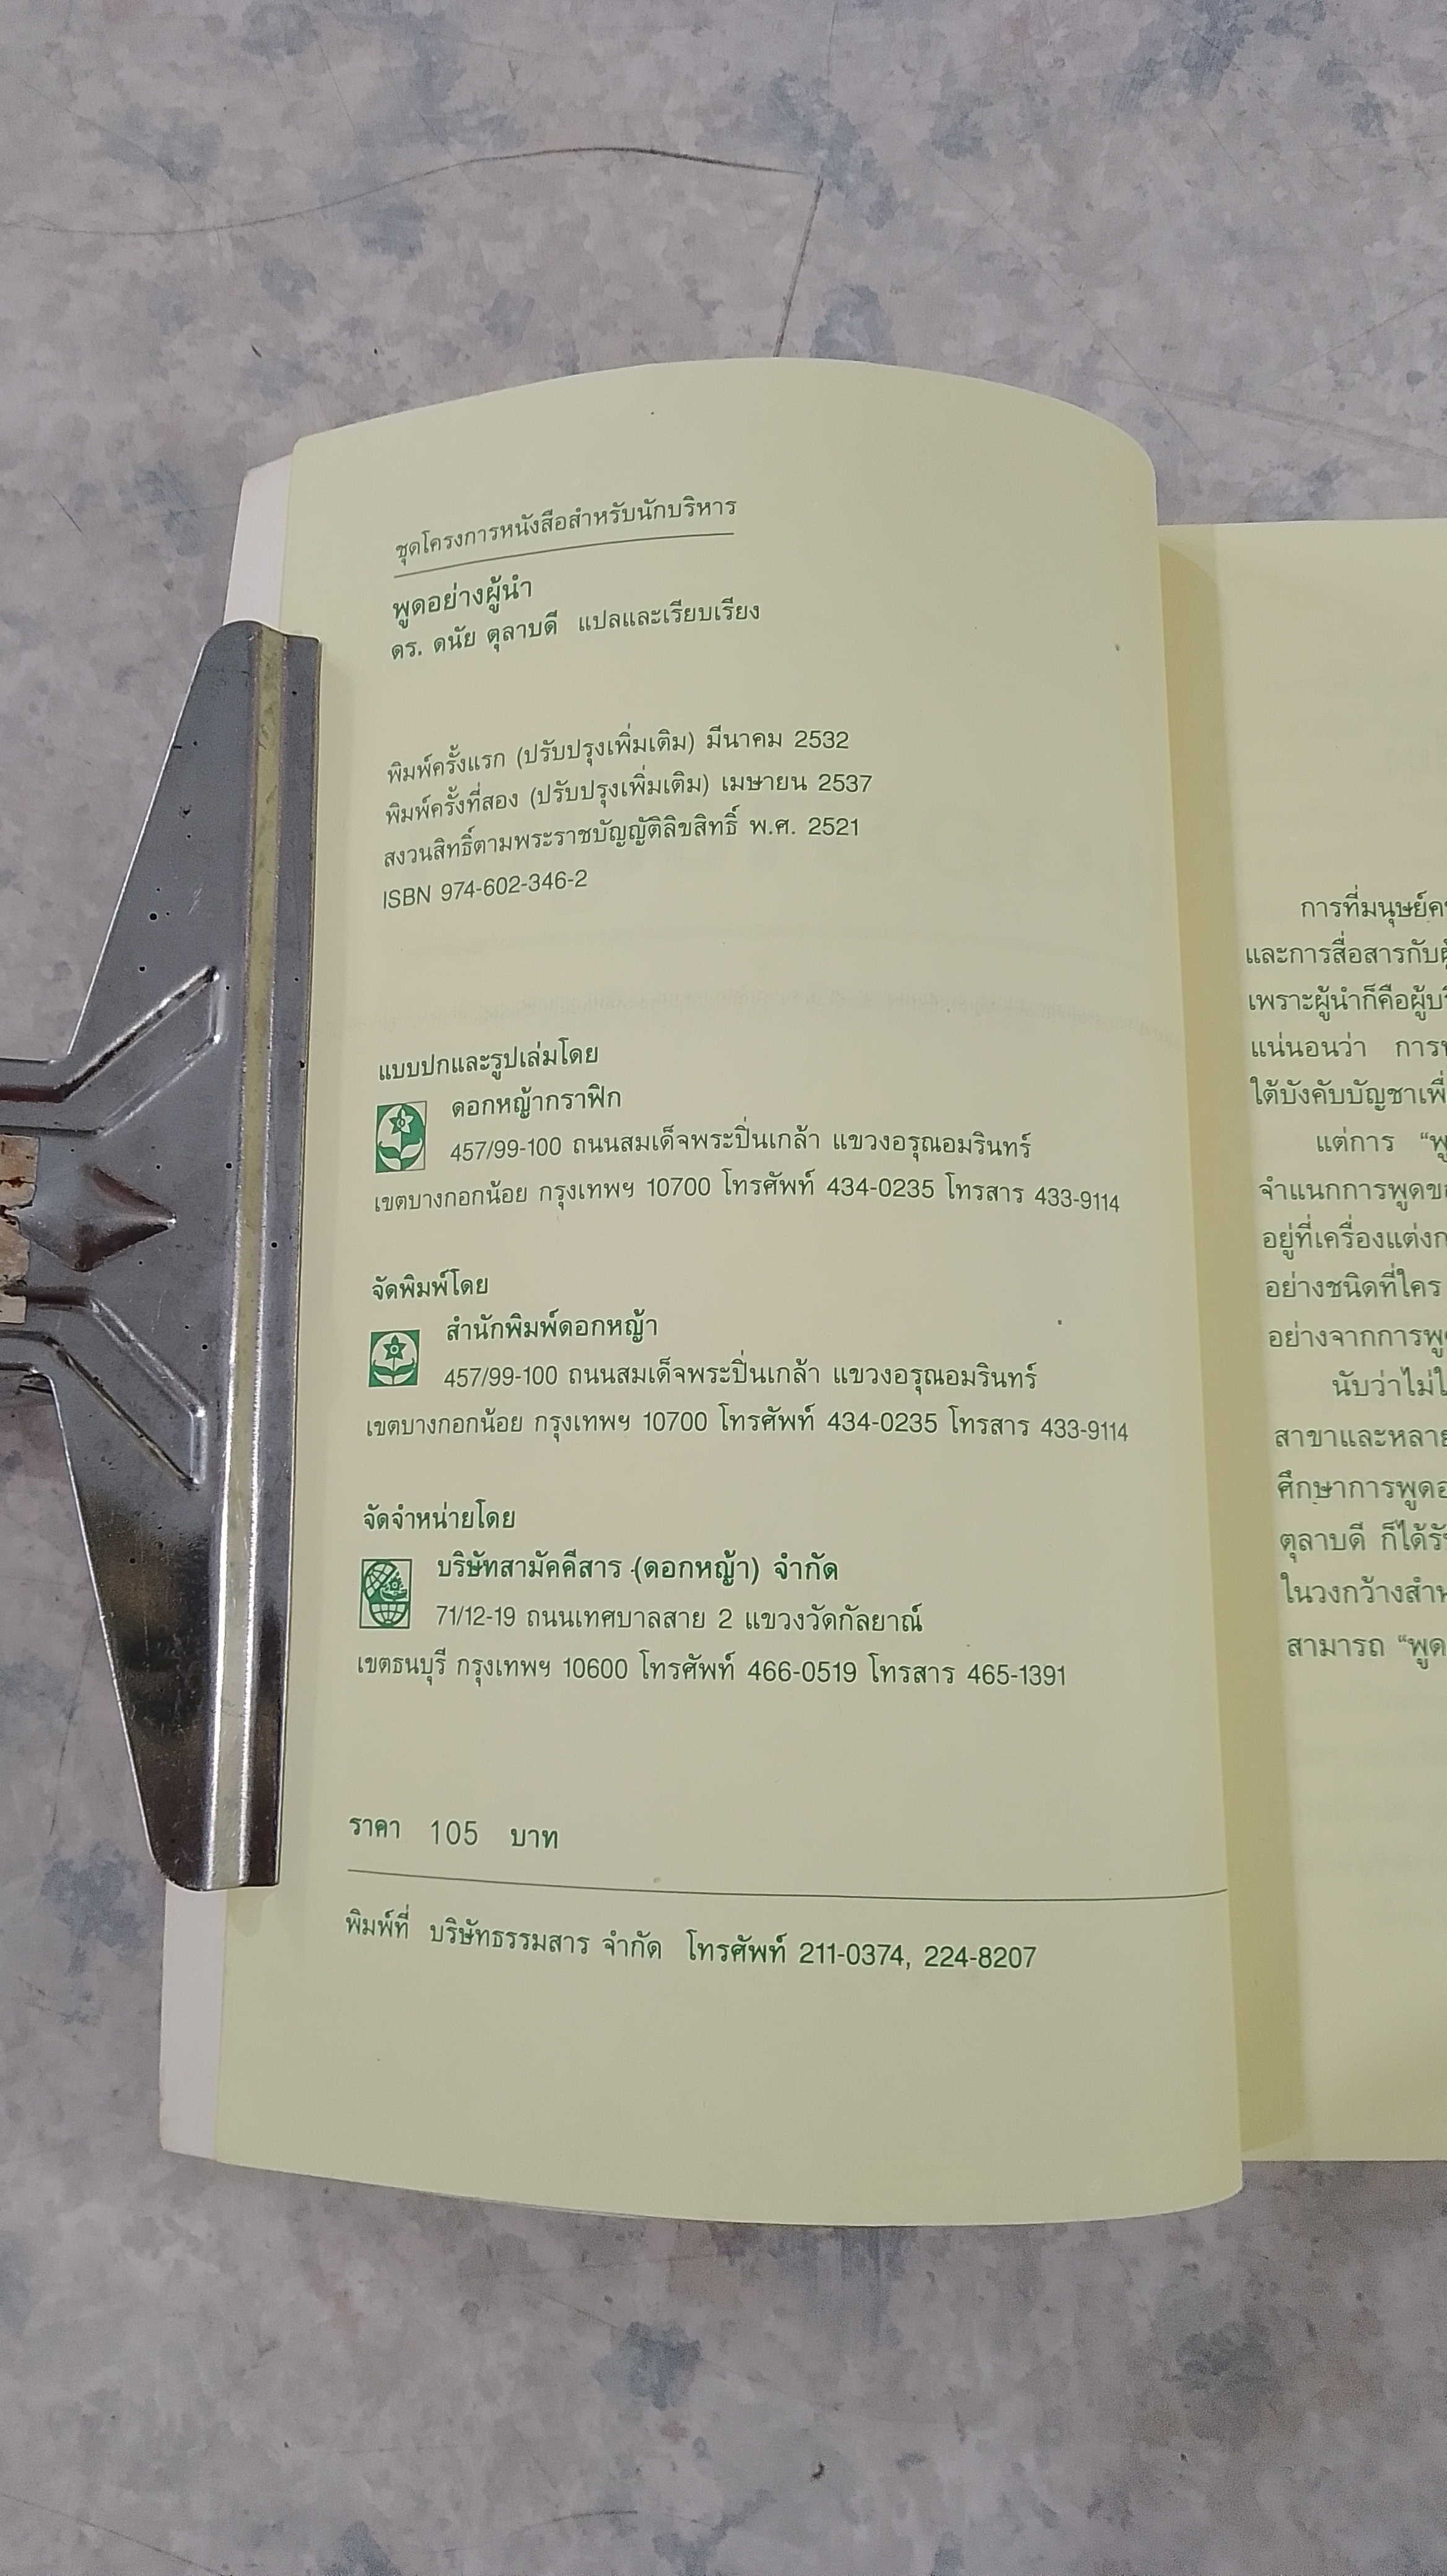 ชุดโครงการหนังสือสำหรับนักบริหาร
พูดอย่างผู้นำ
ดร. ดนัย ตุลาบดี แปลและเรียบเรียง
พิมพ์ครั้งแรก (ปรับปรุงเพิ่มเติม) มีนาคม 2532
พิมพ์ครั้งที่สอง (ปรับปรุงเพิ่มเติม) เมษายน 2537
สงวนสิทธิ์ตามพระราชบัญญัติลิขสิทธิ์ พ.ศ. 2521
ISBN 974-602-346-2
แบบปกและรูปเล่มโดย
ดอกหญ้ากราฟิก
457/99-100 ถนนสมเด็จพระปิ่นเกล้า แขวงอรุณอมรินทร์
เขตบางกอกน้อย กรุงเทพฯ 10700 โทรศัพท์ 434-0235 โทรสาร 433-9114
จัดพิมพ์โดย
สำนักพิมพ์ดอกหญ้า
457/99-100 ถนนสมเด็จพระปิ่นเกล้า แขวงอรุณอมรินทร์
เขตบางกอกน้อย กรุงเทพฯ 10700 โทรศัพท์ 434-0235 โทรสาร 433-9114
จัดจำหน่ายโดย
บริษัทสามัคคีสาร (ดอกหญ้า) จำกัด
71/12-19 ถนนเทศบาลสาย 2 แขวงวัดกัลยาณ์
เขตธนบุรี กรุงเทพฯ 10600 โทรศัพท์ 466-0519 โทรสาร 465-1391
ราคา 105 บาท
พิมพ์ที่ บริษัทธรรมสาร จำกัด โทรศัพท์ 211-0374, 224-8207
การที่มนุษย์
และการสื่อสารกับ
เพราะผู้นำก็คือ
แน่นอนว่า การ
ใต้บังคับบัญชา
แต่การ
จำแนกการพูด
อยู่ที่เครื่อง
อย่างชนิดที่ใคร
อย่างจากการ
นับว่าไม่
สาขาและ
ศึกษาการพูด
ตุลาบดี ก็ได้
ในวงกว้าง
สามารถ “พูด